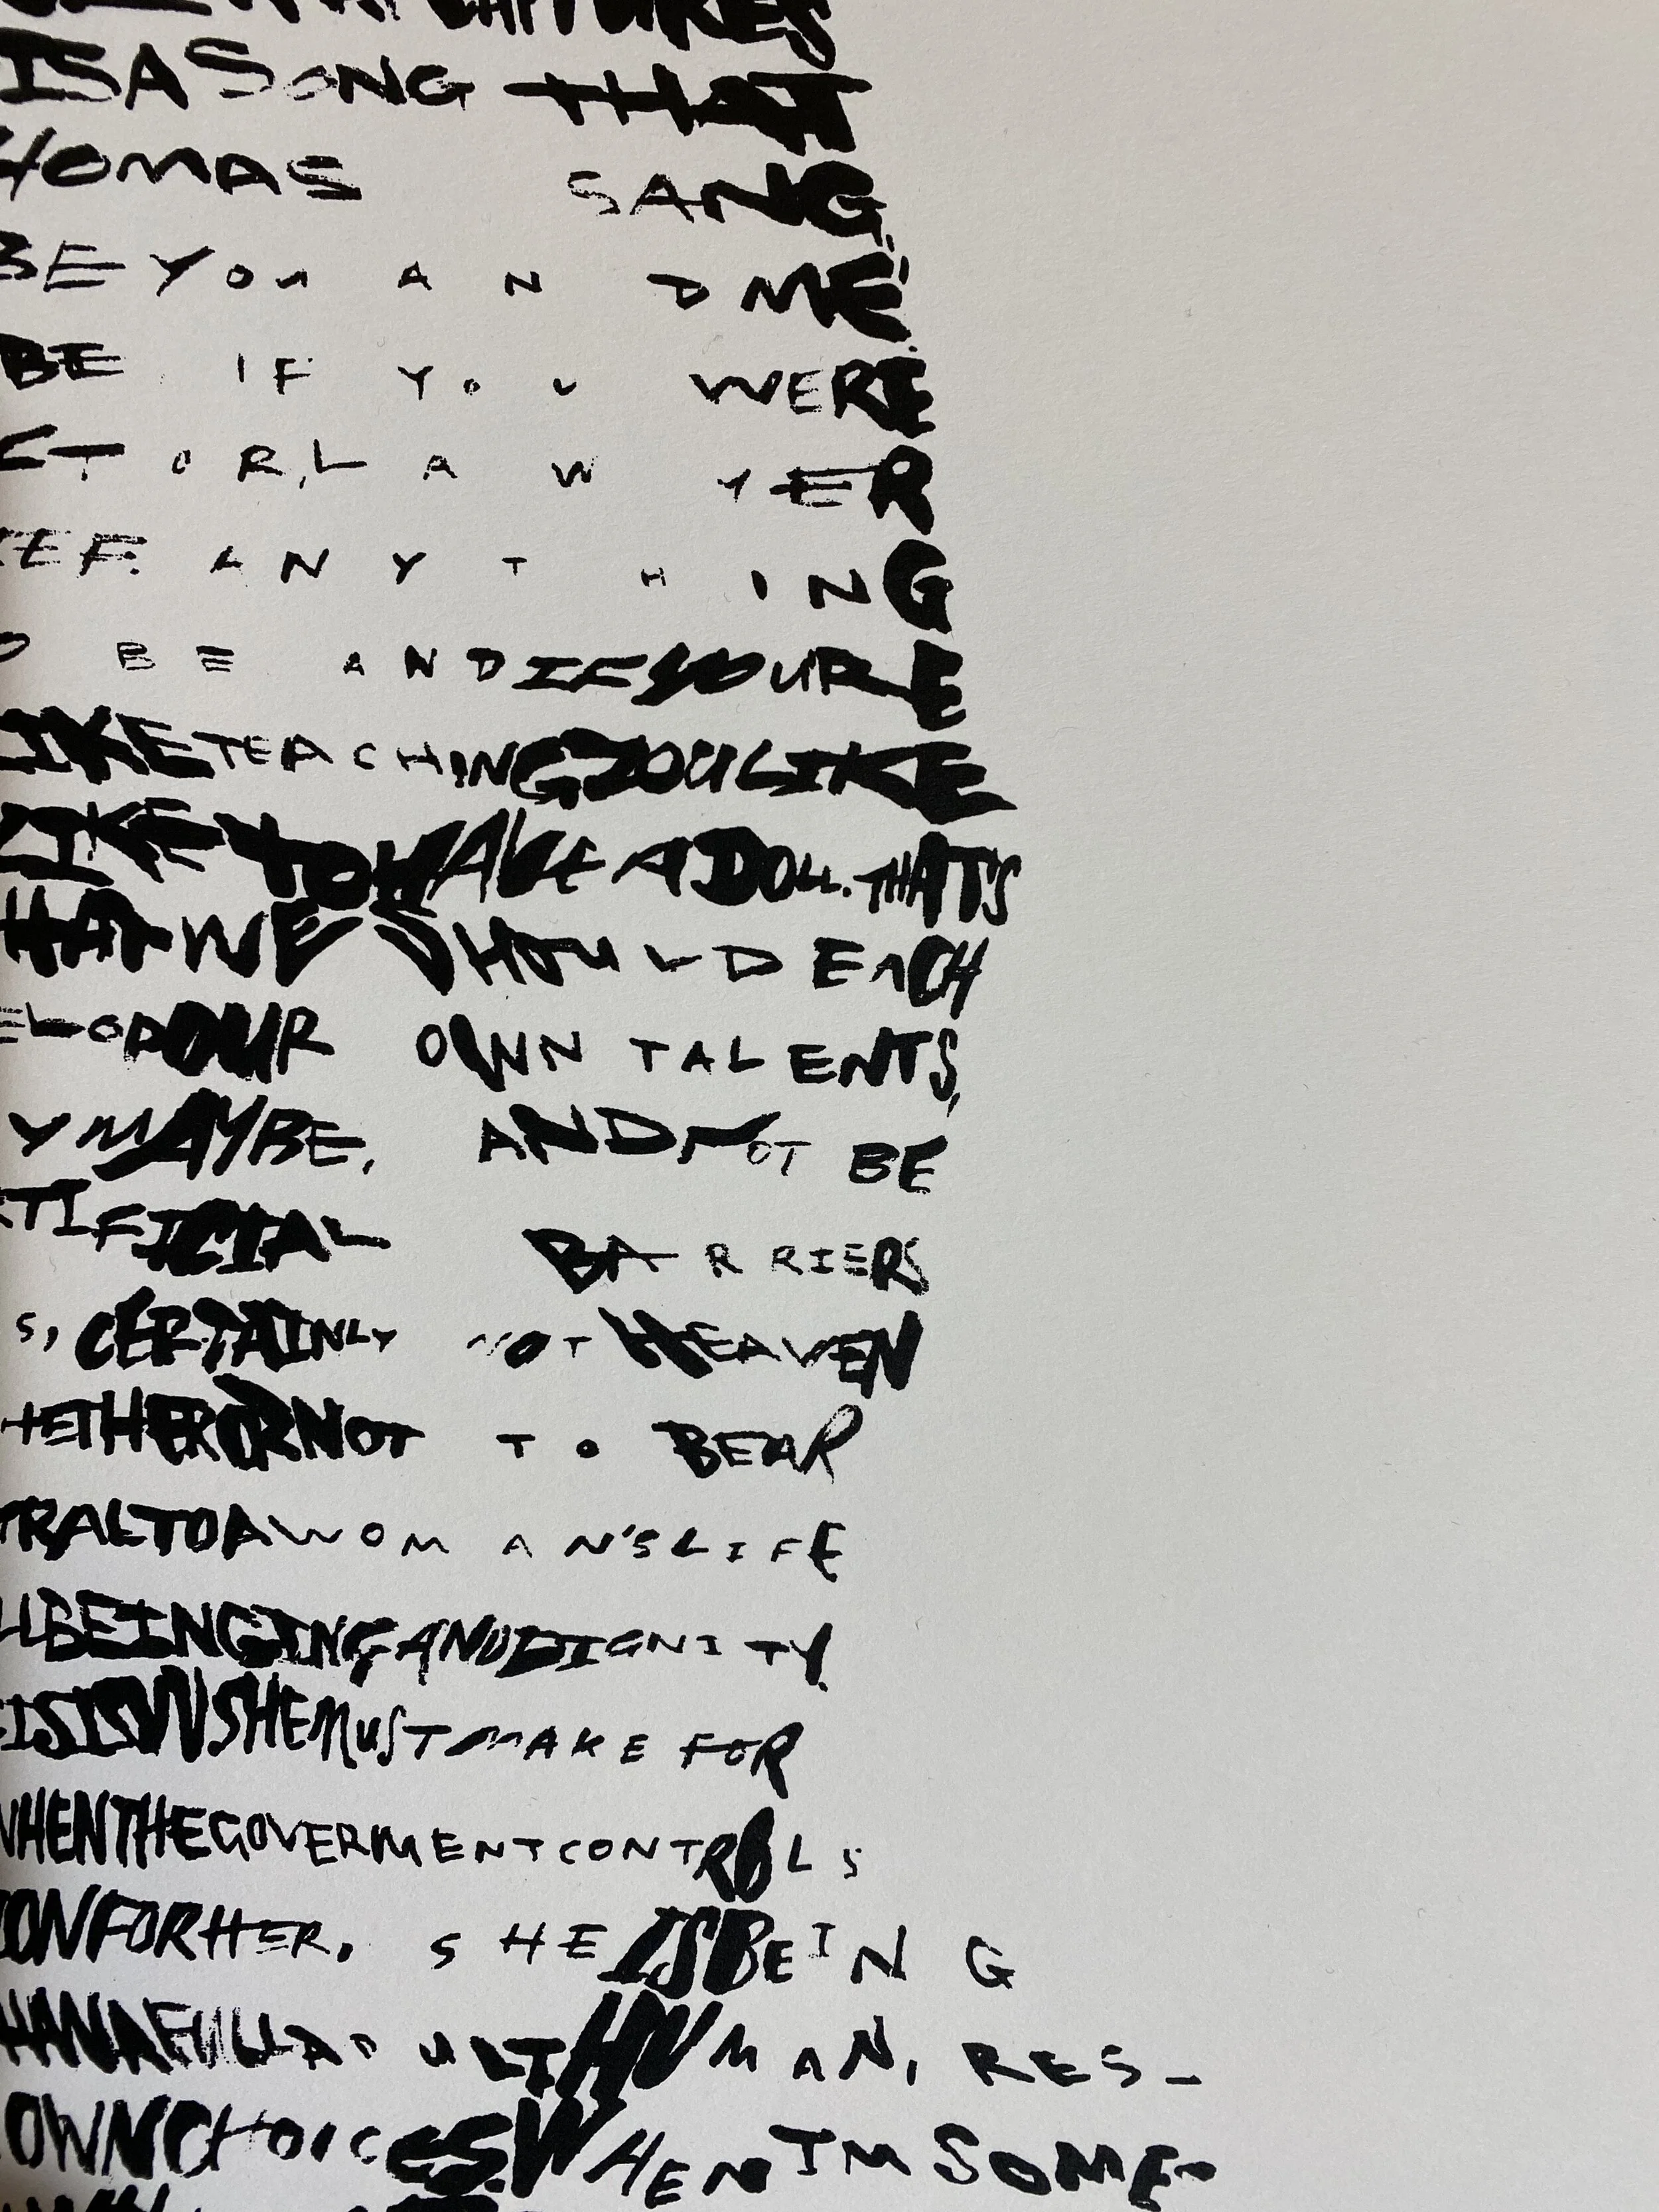 IS A SONG THAT
HOMAS SANG,
BE YOU AND ME"
BE. IF YOU WERE
CTOR, LAWYER
EF. ANYTHING
O BE AND IF YOURE
LIKE TEACHING YOU LIKE
LIKE TO HAVE A DOLL. THAT'S
HAT WE SHOULD EACH
ELOP OUR OWN TALENTS,
Y MAYBE, AND NOT BE
RTIFICIAL BARRIERS
S, CERTAINLY NOT HEAVEN
HETHER OR NOT TO BEAR
TRAL TO A WOMAN'S LIFE
LLBEINGING AND DIGNITY.
CISION SHE MUST MAKE FOR
WHEN THE GOVERMENT CONTROLS
ION FOR HER, SHE IS BEING
HAN A FULL ADULT HUMAN, RES-
OWN CHOICES. WHEN IM SOME-